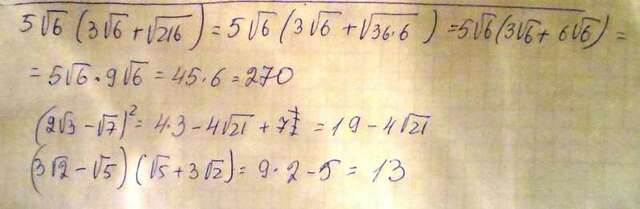 5√6 (3√6 + √216) = 5√6 (3√6 + √36·6) = 5√6(3√6 + 6√6) =
= 5√6 · 9√6 = 45·6 = 270
(2√3 - √7)² = 4·3 - 4√21 + 7 = 19 - 4√21
(3√2 - √5) (√5 + 3√2) = 9·2 - 5 = 13